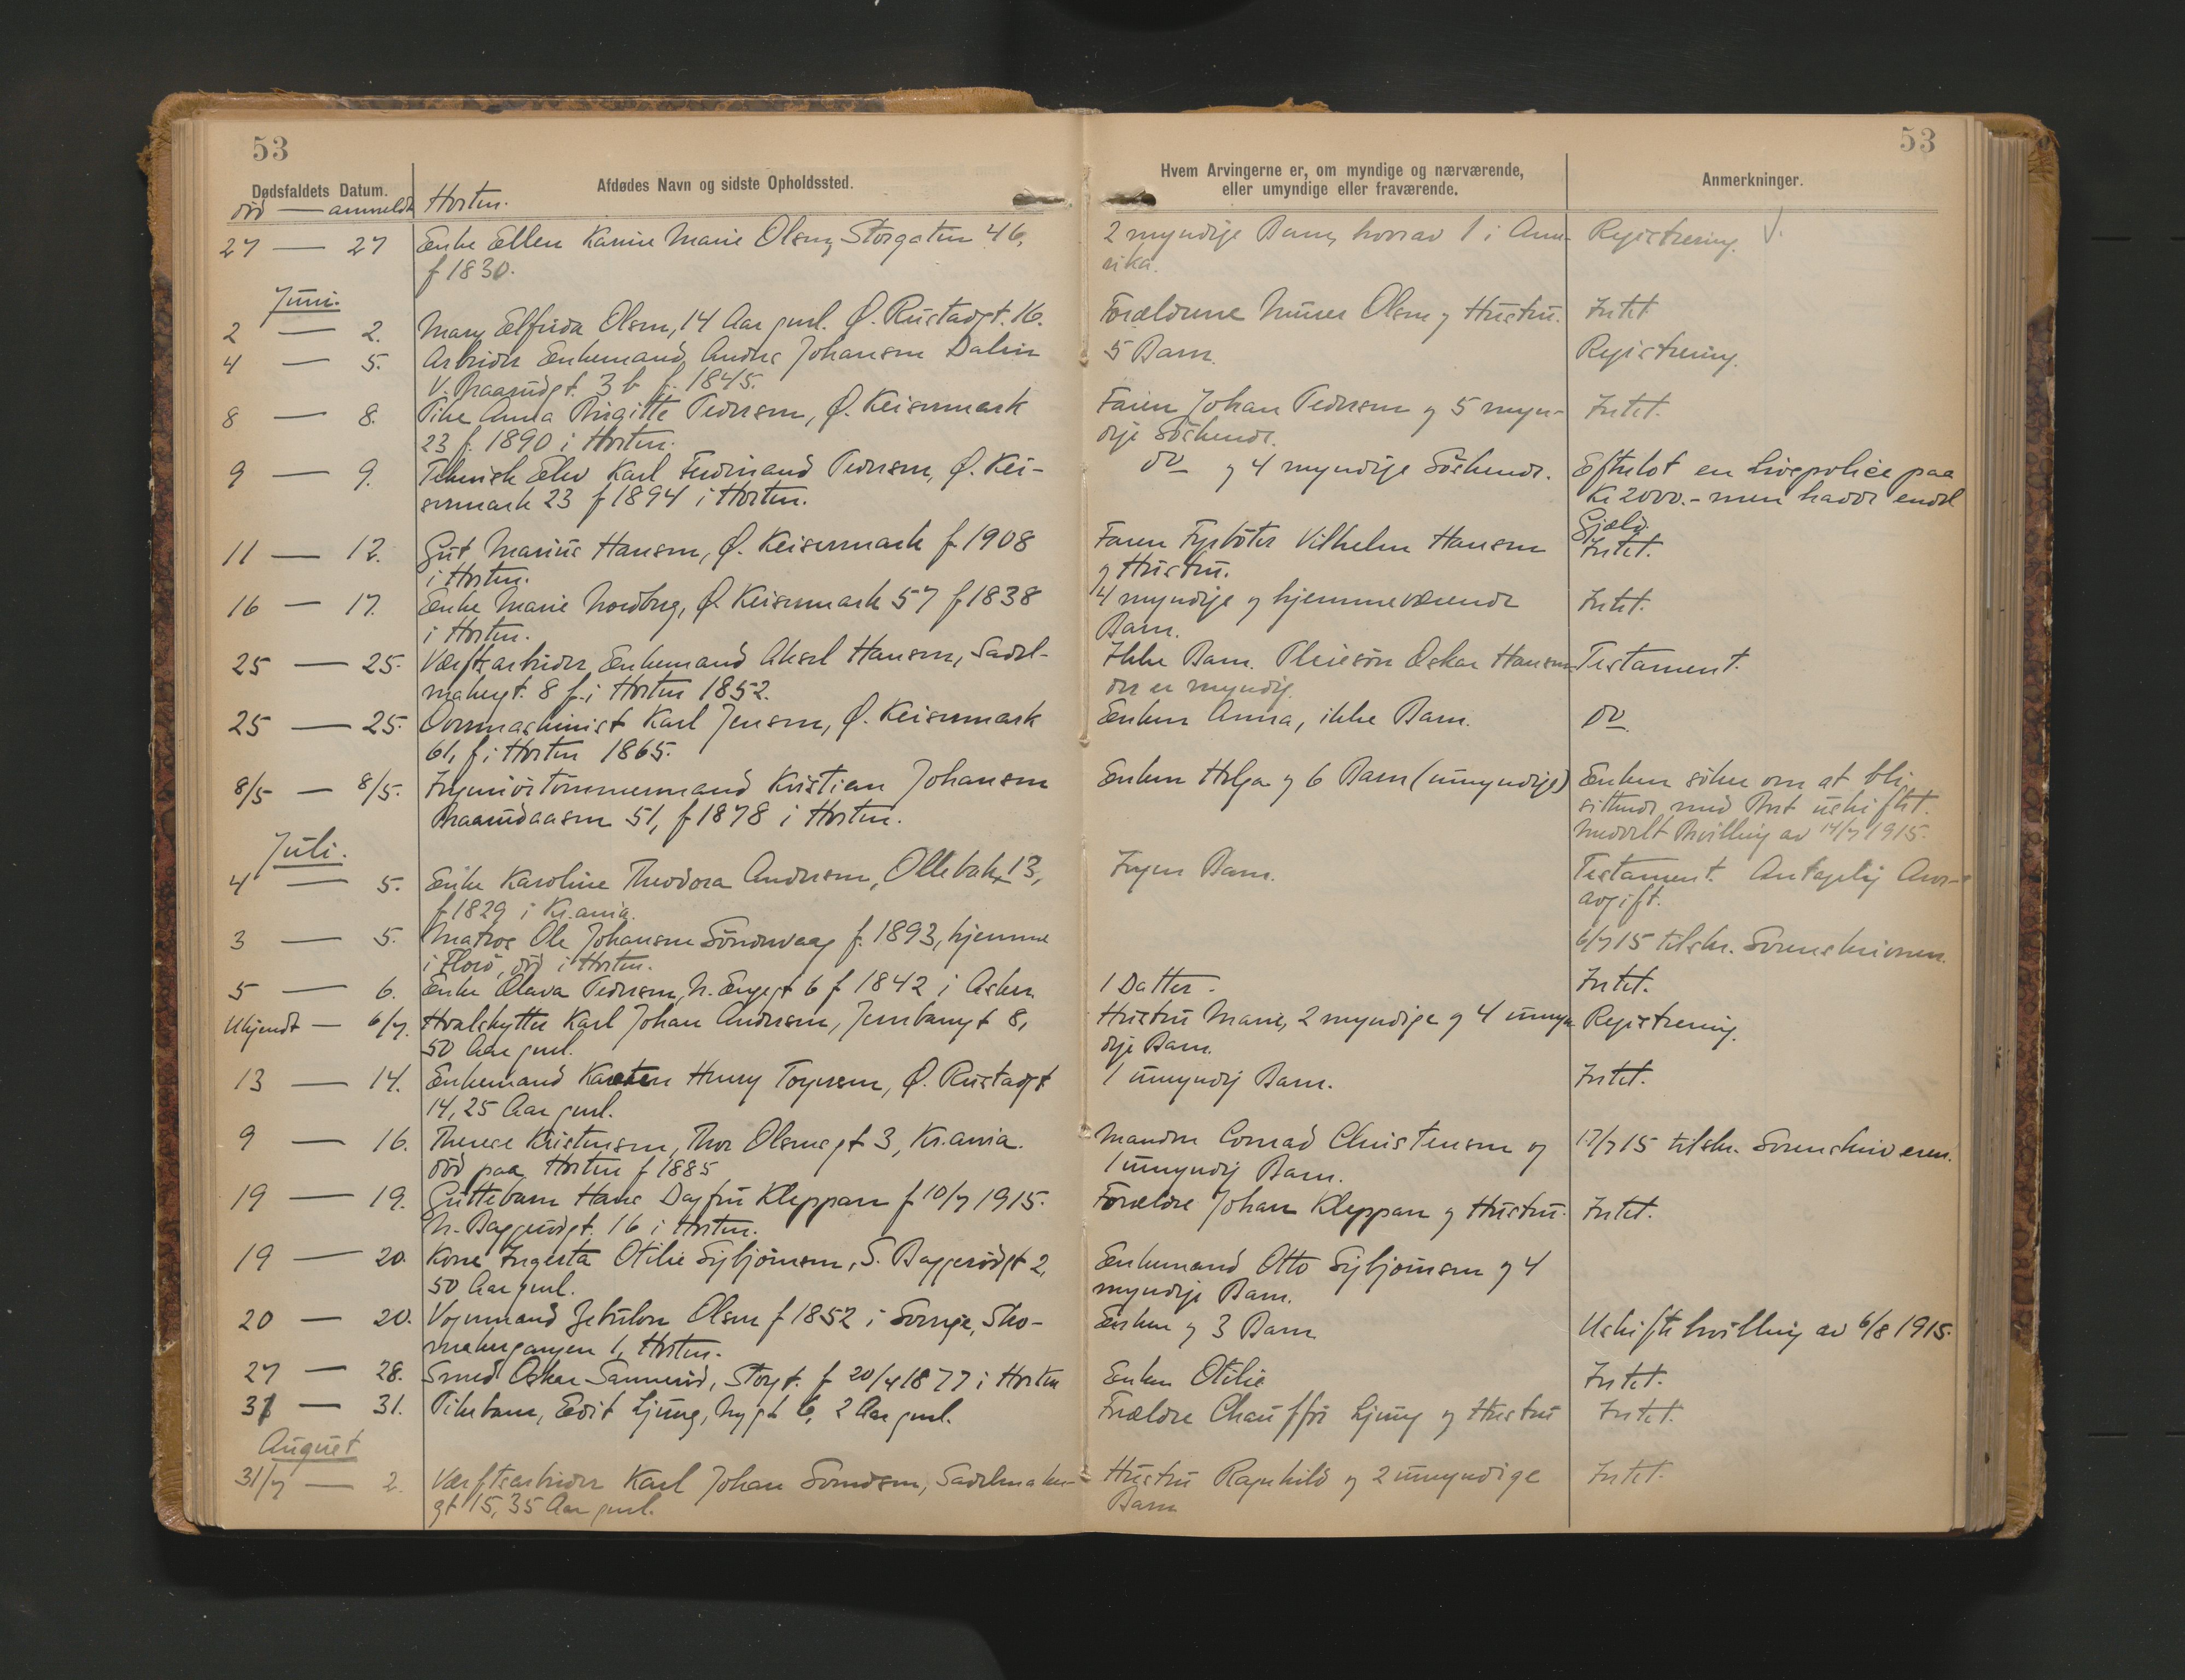 53
53
Dødsfaldets Datum.
Afdødes Navn og sidste Opholdssted.
Hvem Arvingerne er, om myndige og nærværende,
eller umyndige eller fraværende.
Anmerkninger.
död — anmeldt Horten.
27 — 27 Enke Ellen Karine Marie Olsen, Storgaten 46, 2 myndige Barn, hvorav 1 i Ame- Registrering.
f 1830. rika.
Juni.
2 — 2. Mary Elfrida Olsen, 14 Aar gml. Ø. Rustadgt. 16. Forældrene Murer Olsen og Hustru. Intet
4 — 5. Arbeider Enkemand Andres Johansen Dalen 5 Barn. Registrering.
V. Braarudgt. 3 b f. 1845.
8 — 8. Pike Anna Birgitte Pedersen, Ø. Keisermark Faren Johan Pedersen og 5 myn- Intet.
23 f. 1890 i Horten. dige Söskende.
9 — 9. Teknisk Elev Karl Ferdinand Pedersen, Ø. Kei- do og 4 myndige Söskende. Efterlot en Livspolice paa
sermark 23 f 1894 i Horten. Kr 2000.- men havde endel
Gjæld.
11 — 12. Gut Marius Hansen, Ø. Keisermark f 1908 Faren Fyrböter Vilhelm Hansen Intet.
i Horten. og Hustru.
16 — 17. Enke Marie Nordberg, Ø. Keisermark 57 f 1838 4 myndige og hjemmeværende Intet.
i Horten. Barn.
25 — 25. Værftsarbeider, Enkemand Aksel Hansen, Sadel- Ikke Barn. Pleiesön Oskar Hansen Testament.
makergt. 8 f. i Horten 1852. der er myndig.
25 — 25. Ovrmaskinist Karl Jensen, Ø. Keisermark Enken Anna, ikke Barn. do
61, f i Horten 1865.
8/5 — 8/5. Ingeniörtömmermand Kristian Johansen Enken Helga og 6 Barn (umyndige) Enken söker om at bli
Braarudaasen 51, f 1878 i Horten. sittende med Boet uskiftet.
Meddelt Bevilling av 14/7 1915.
Juli.
4 — 5. Enke Karoline Theodora Andersen, Ollebak. 13, Ingen Barn. Testament. Antagelig Arve-
f 1829 i Kr.ania. avgift.
3 — 5. Matros Ole Johansen Söndervaag f. 1893, hjemme 6/7 15 tilskr. Sorenskriveren.
i Florö, död i Horten.
5 — 6. Enke Olava Pedersen, N. Engegt 6 f 1842 i Asker. 1 Datter. Intet.
Ukjendt — 6/7. Hvalskytter Karl Johan Andersen, Jernbanegt 8, Hustru Marie, 2 myndige og 4 umyn- Registrering.
50 Aar gml. dige Barn.
13 — 14. Enkemand Karsten Henry Torgersen, Ø. Rustadgt 1 umyndig Barn. Intet.
14, 25 Aar gml.
9 — 16. Therese Kristensen, Thor Olsensgt 3, Kr.ania. Manden Conrad Christensen og 17/7 15 tilskr. Sorenskriveren.
död paa Horten f 1885 1 umyndig Barn.
19 — 19. Guttebarn Hans Dagfin Kleppan f 10/7 1915. Forældre Johan Kleppan og Hustru. Intet.
N. Baggerudgt. 16 i Horten.
19 — 20. Kone Ingerta Otilie Sigbjörnsen, S. Baggerödgt 2, Enkemand Otto Sigbjörnsen og 4
50 Aar gml. myndige Barn.
20 — 20. Vognmand Zebulon Olsen f 1852 i Sverige, Sko- Enken og 3 Barn Uskiftebevilling av 6/8 1915.
makergangen 1, Horten.
27 — 28. Smed Oskar Sannerud, Storgt. f 20/4 1877 i Horten Enken Otilie Intet.
31 — 31. Pikebarn, Edit Ljung, Nygt 6, 2 Aar gml. Forældre Chaufför Ljung og Hustru Intet.
August
31/7 — 2. Værftsarbeider Karl Johan Svendsen, Sadelmaker- Hustru Ragnhild og 2 umyndige Intet.
gt 15, 35 Aar gml. Barn